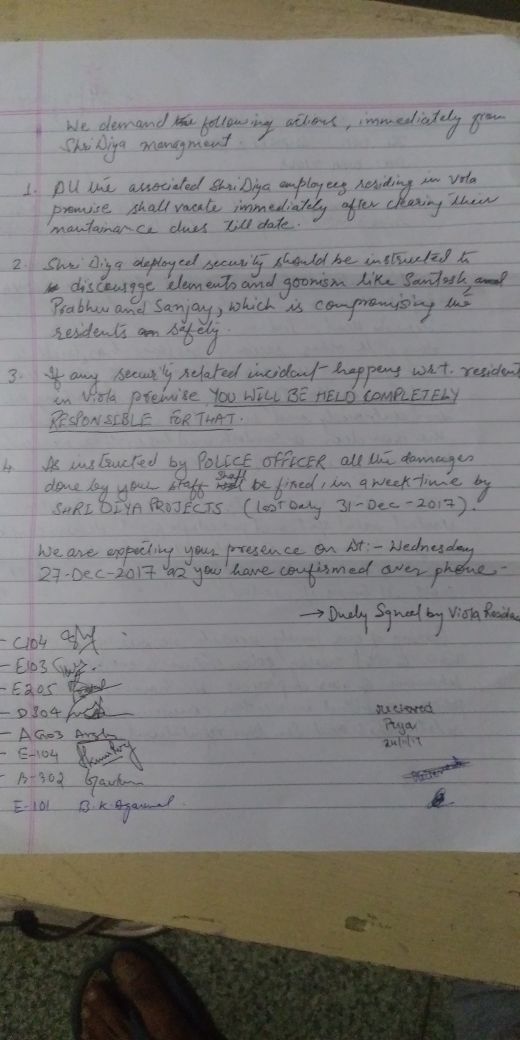 We demand the following actions, immediately from
Shri Diya managment.
1. All the associated ShriDiya employees residing in Viola
promise shall vacate immediately after clearing their
maintainance dues till date.
2. Shri Diya deployed security should be instructed to
discourage elements and goonism like Santosh, and
Prabhu and Sanjay, which is compromising the
residents safety.
3. If any security related incident happens w.r.t. resident
in Viola premise YOU WILL BE HELD COMPLETELY
RESPONSIBLE FOR THAT.
4. As instructed by POLICE OFFICER all the damages
done by your staff shall be fixed, in a week time by
SHRI DIYA PROJECTS (last Day 31-Dec-2017).
We are expecting your presence on Dt:- Wednesday
27-Dec-2017 as you have confirmed over phone -
→ Duely Signed by Viola Residen
- C104
- E103
- E205
- D304
- AG03
- E-104
- B-302 Gautam
E-101 B.K. Agarwal.
recieved
Priya